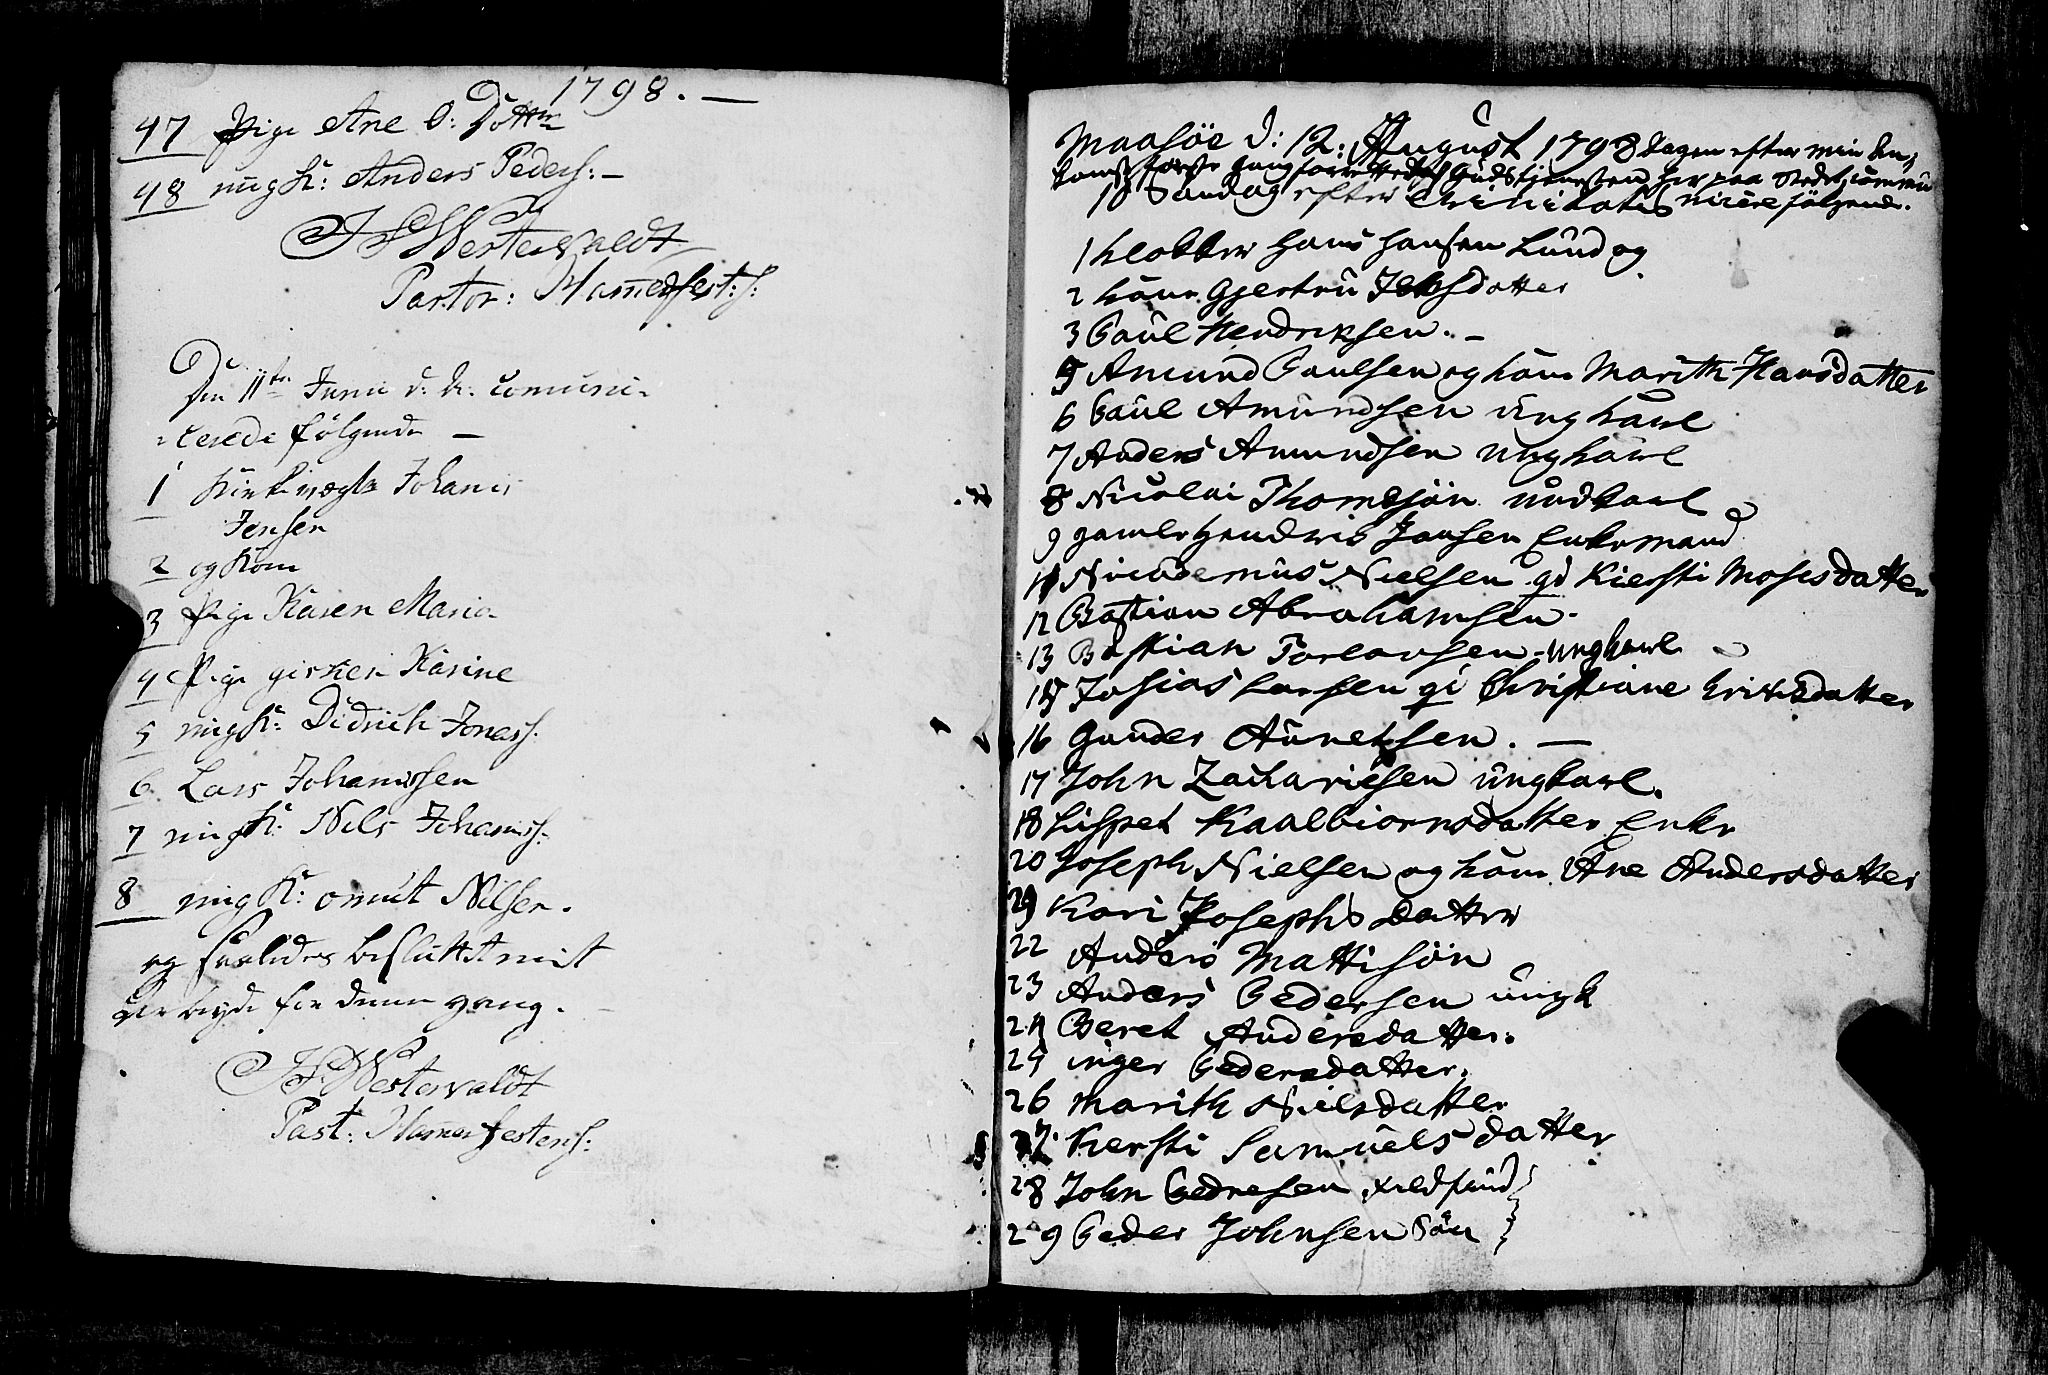 1798. —
47 Pige Ane O: Dotter
48 ungK: Anders Peders: —
JFWesterwaldt
Pastor: Hamerfest:s:
Den 11te Junii d: A: comuni-
-cerede følgende —
1 Kirkevægter Johanis
Jensen
2 og Kone
3 Pige Karen Maria
4 Pige Karine
5 ungK: Didrich Jonass:
6 Lars Johannssen
7 ungK: Nils Johaniss:
8 ungK: omut Nilsen.
og saaledes besluttet mit
Arbeyde for denne gang.
JFWesterwaldt
Past: Hamerfestens:
Maasöe d: 12: August 1798 Dagen efter min An-
komst første gang forrettedes Gudstjenesten her paa Stedet, commu-
10 Søndag efter Trinitatis nicere følgende.
1 Klokker Hans Hansen Lund og
2 kone Gjertru Jensdatter
3 Paul Hendriksen. —
5 Amund Paulsen og kone Marith Hansdatter
6 Paul Amundsen ungkarl
7 Anders Amundsen ungkarl
8 Nicolai Thomesön ungkarl
9 gamle Hendric Jansen Enkemand
11 Nicodemus Nielsen gi Kiersti Mosisdatter
12 Bastian Abrahamsen.
13 Bastian Torlavsen ungkarl
15 Josias Larsen gi Christiane Eriksdatter
16 Gunder Aunetsen. —
17 John Zachariesen ungkarl.
18 Lispet Kaalbiornsdatter Enke
20 Joseph Nielsen og kone Ane Andersdatter
29 Kari Josephsdatter
22 Anders Mattisön
23 Anders Pedersen ungk
24 Beret Andersdatter.
25 inger Pedersdatter.
26 Marith Nielsdatter
27. Kersti Samuelsdatter
28 John Pedresen fieldfind
29 Peder Johnsen Sön